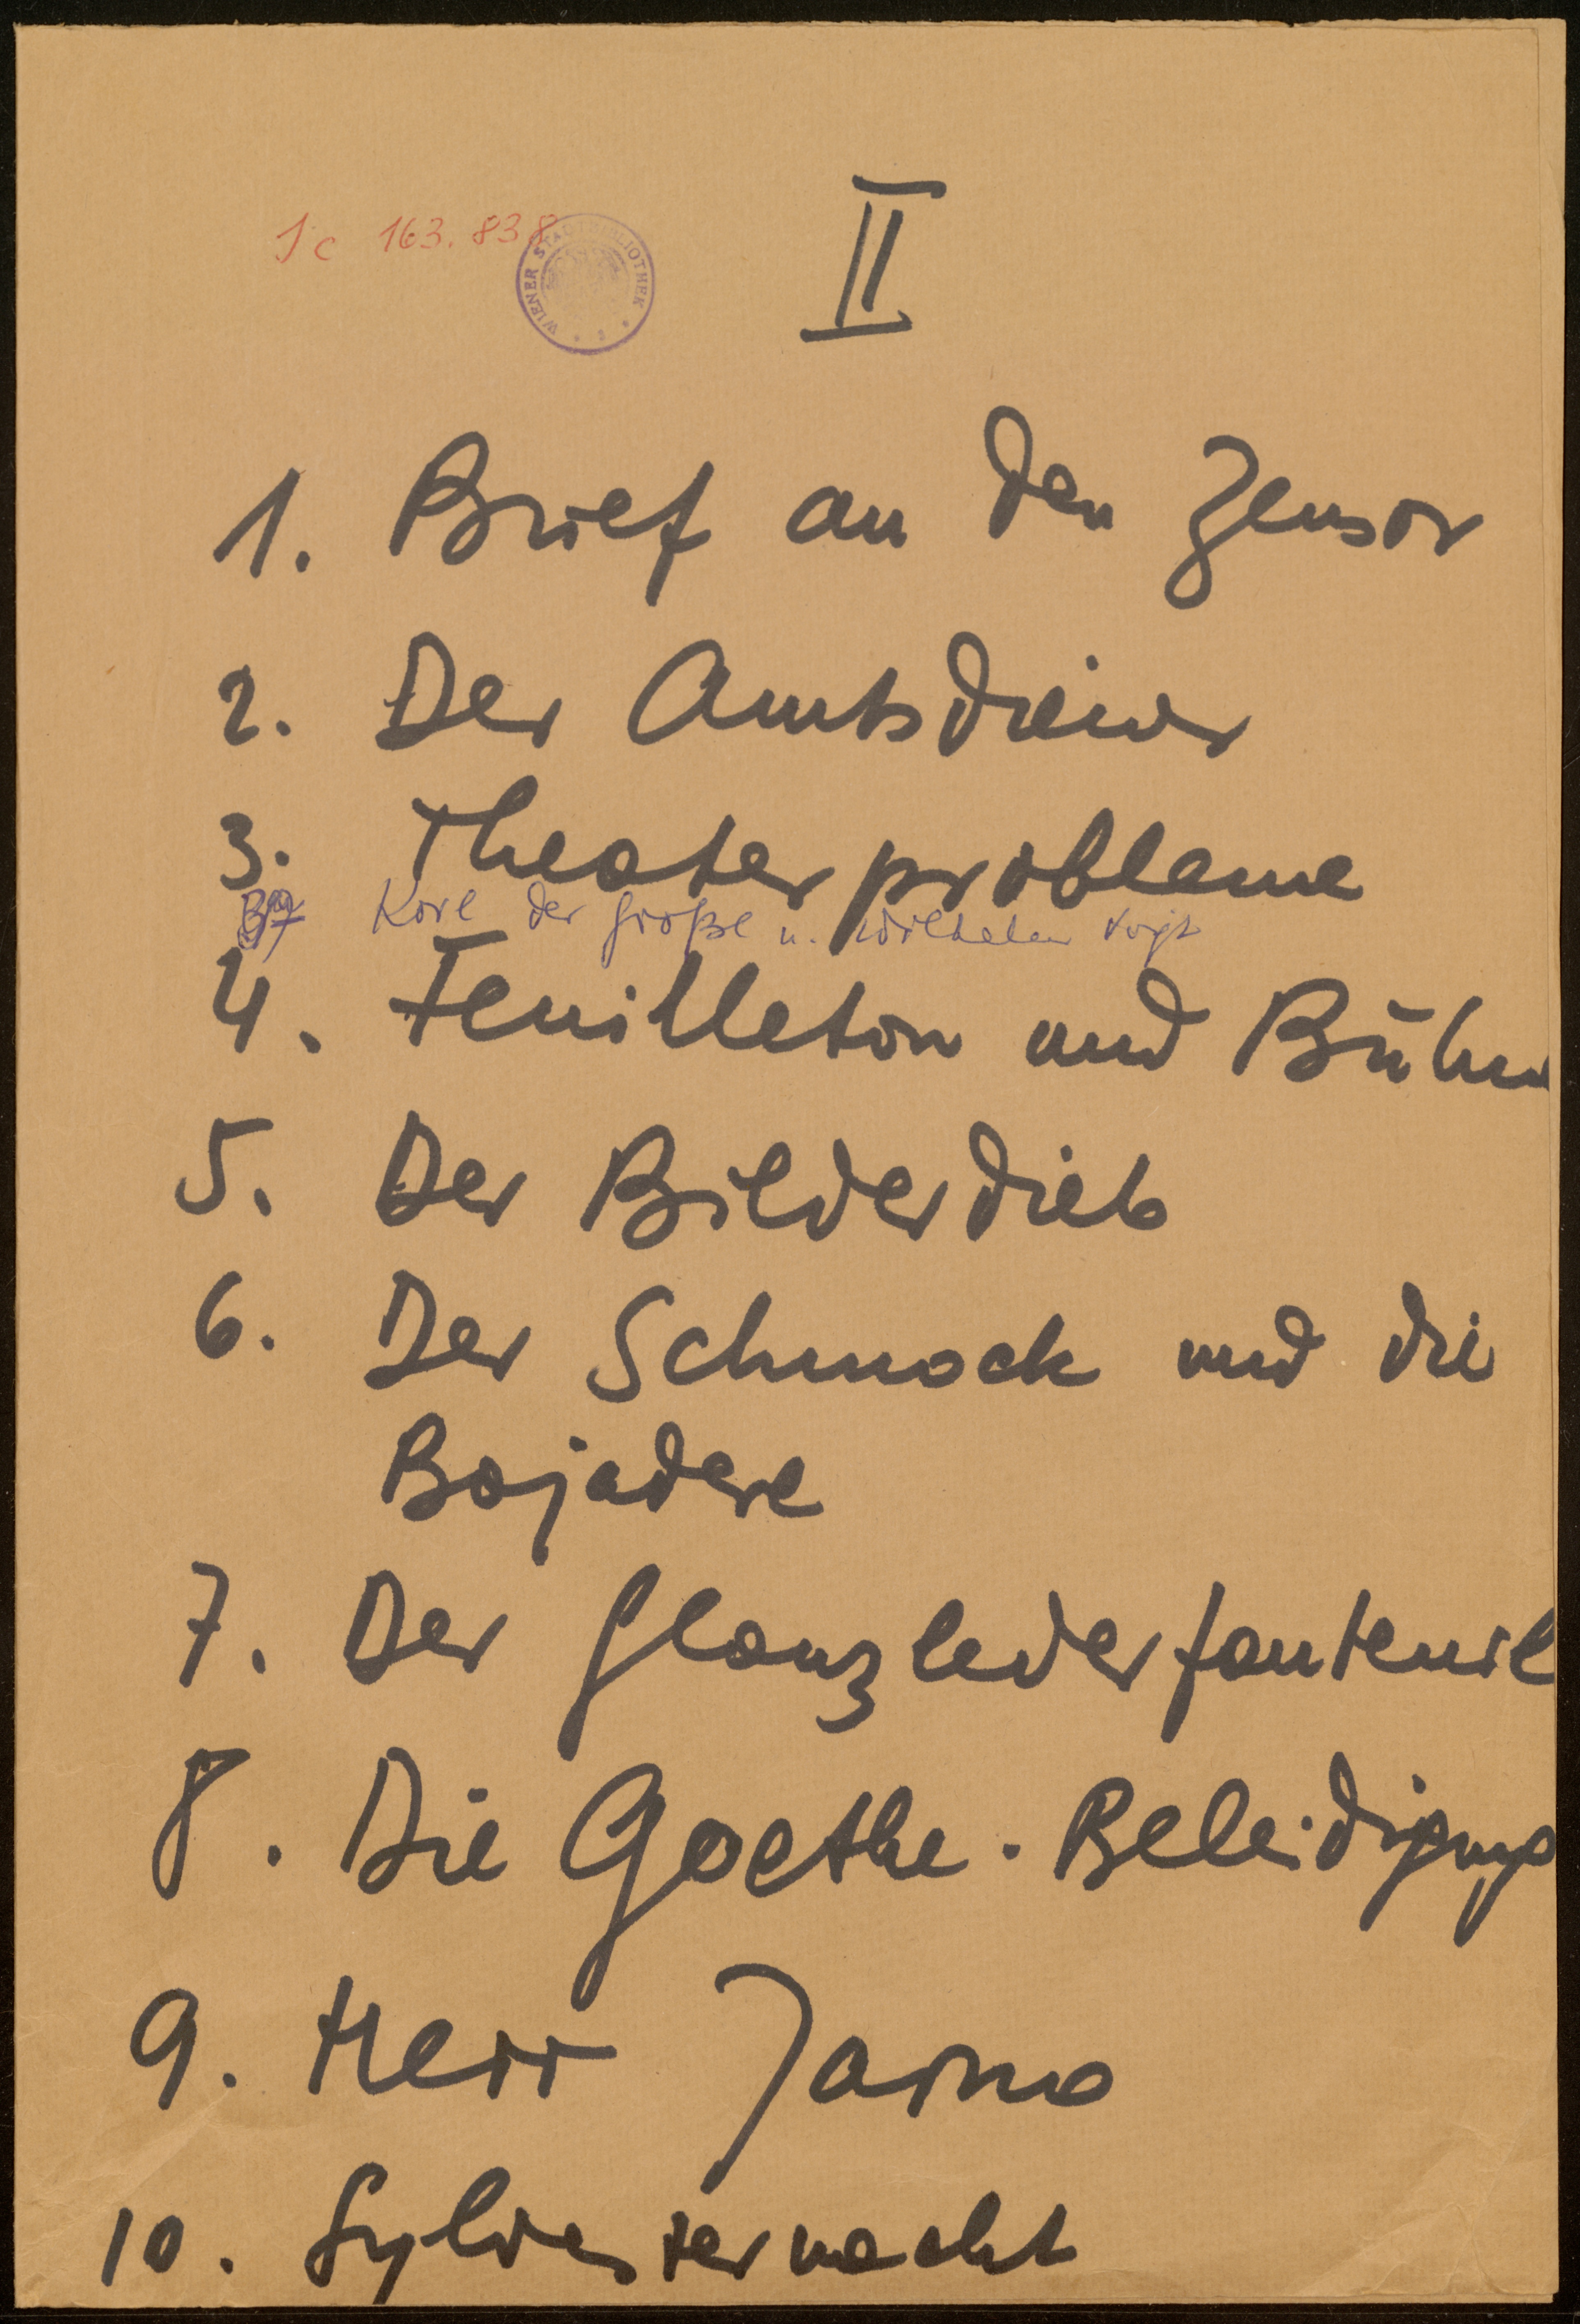 II
Jc 163.838
WIENER STADTBIBLIOTHEK
1. Brief an den Zensor
2. Der Amtsdiener
3. Theaterprobleme
Karl der Große u. Wilhelm Voigt
4. Feuilleton und Bühne
5. Der Bilderdieb
6. Der Schmock und die
Bajadere
7. Der Glanzlederfauteuil
8. Die Goethe-Beleidigung
9. Herr Jarno
10. Sylvesternacht